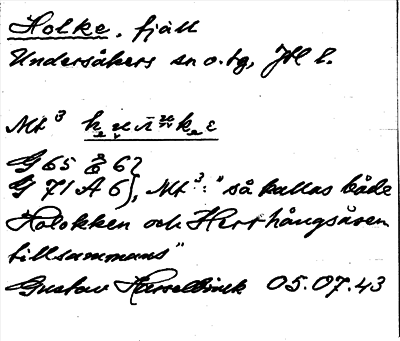 Holke. fjäll
Undersåkers sn o. tg, Jtl l.
Mt³
G 65 E 6
G 71 A 6}, Mt³: "så kallas både
Holokken och Herrhångsåsen
tillsammans"
Gustav Hasselbrink 05.07.43